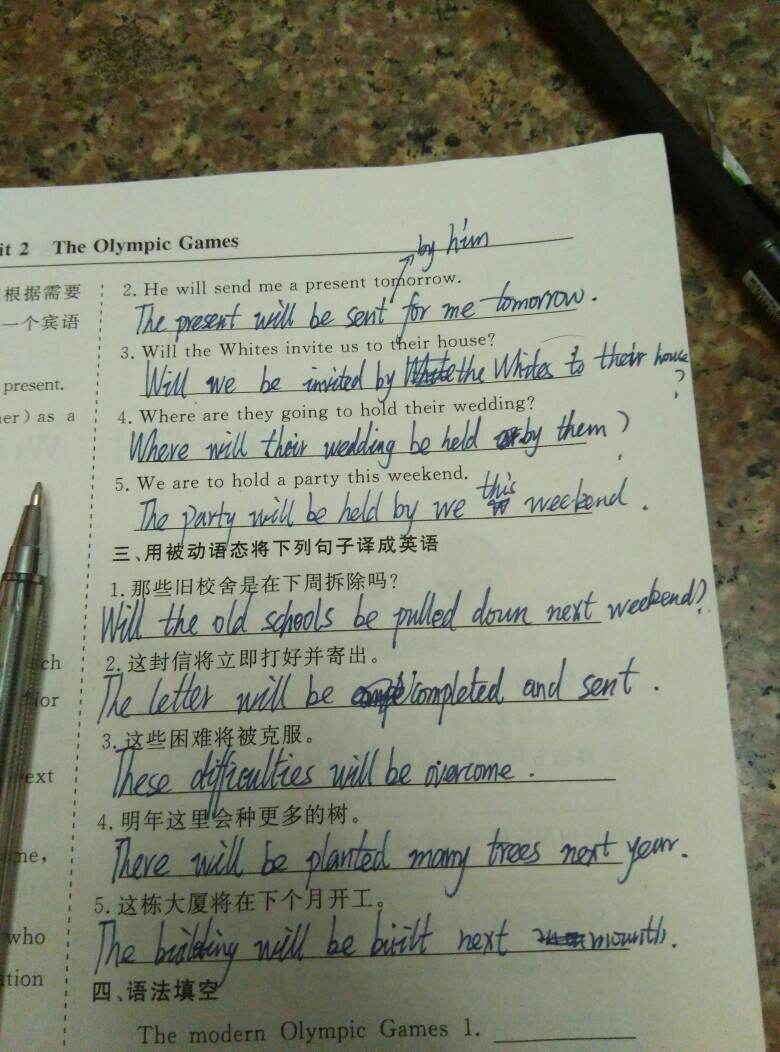 it 2 The Olympic Games
by him
根据需要
2. He will send me a present tomorrow.
一个宾语
The present will be sent for me tomorrow.
3. Will the Whites invite us to their house?
present.
Will we be invited by the Whites to their house?
er) as a
4. Where are they going to hold their wedding?
Where will their wedding be held by them?
5. We are to hold a party this weekend.
The party will be held by we this weekend.
三、用被动语态将下列句子译成英语
1. 那些旧校舍是在下周拆除吗?
Will the old schools be pulled down next weekend?
ch
2. 这封信将立即打好并寄出。
for
The letter will be completed and sent.
3. 这些困难将被克服。
ext
These difficulties will be overcome.
4. 明年这里会种更多的树。
me,
There will be planted many trees next year.
5. 这栋大厦将在下个月开工。
who
The building will be built next mounth.
ation
四、语法填空
The modern Olympic Games 1.